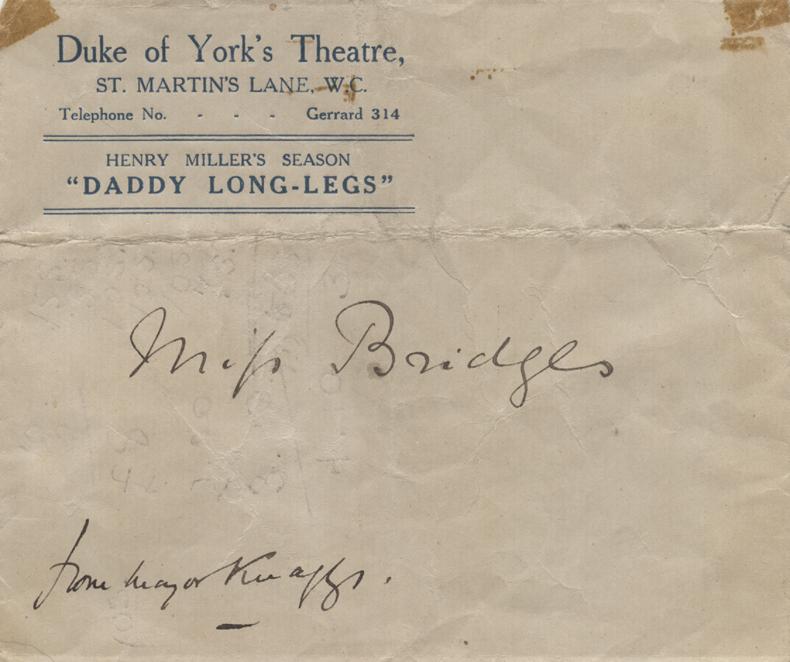 Duke of York's Theatre,
ST. MARTIN'S LANE, W.C.
Telephone No. - - - Gerrard 314
HENRY MILLER'S SEASON
"DADDY LONG-LEGS"
Miss Bridges
from Mayor Knaggs.